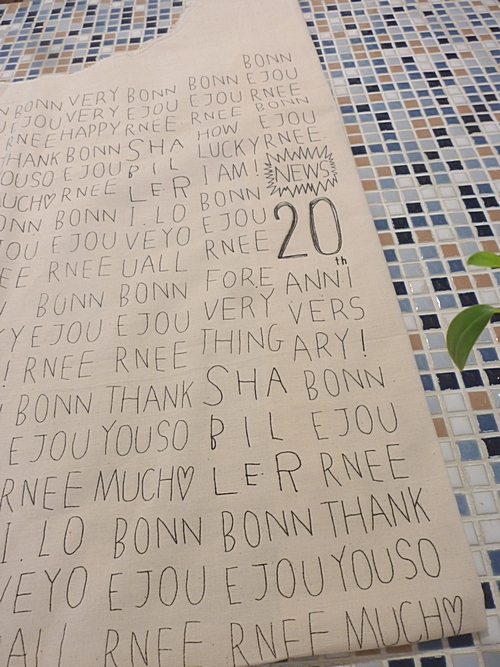 BONN
N BONN VERY BONN BONN EJOU
EJOU VERY EJOU EJOU RNEE
RNEE HAPPY RNEE RNEE BONN
THANK BONN SHA HOW EJOU
OUSO EJOU BIL LUCKY RNEE
MUCH♡ RNEE LER I AM! NEWS
ONN BONN I.LO BONN 20th
OU EJOU VEYO EJOU
EE RNEE UALL RNEE
BONN BONN FORE ANNI
Y EJOU EJOU VERY VERS
! RNEE RNEE THING ARY!
BONN THANK SHA BONN
EJOU YOUSO BIL EJOU
RNEE MUCH♡ LER RNEE
I.LO BONN BONN THANK
VEYO EJOU EJOU YOUSO
ALL RNEE RNEE MUCH♡